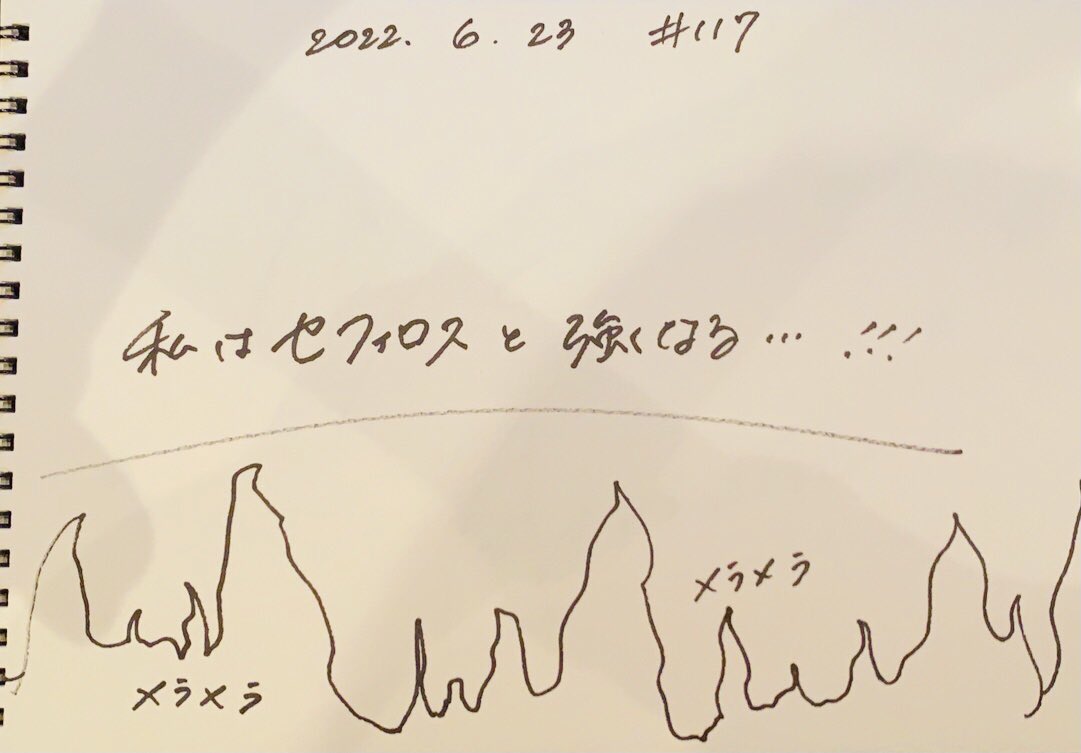 2022. 6. 23 #117
私はセフィロスと強くなる… !!!
メラメラ
メラメラ